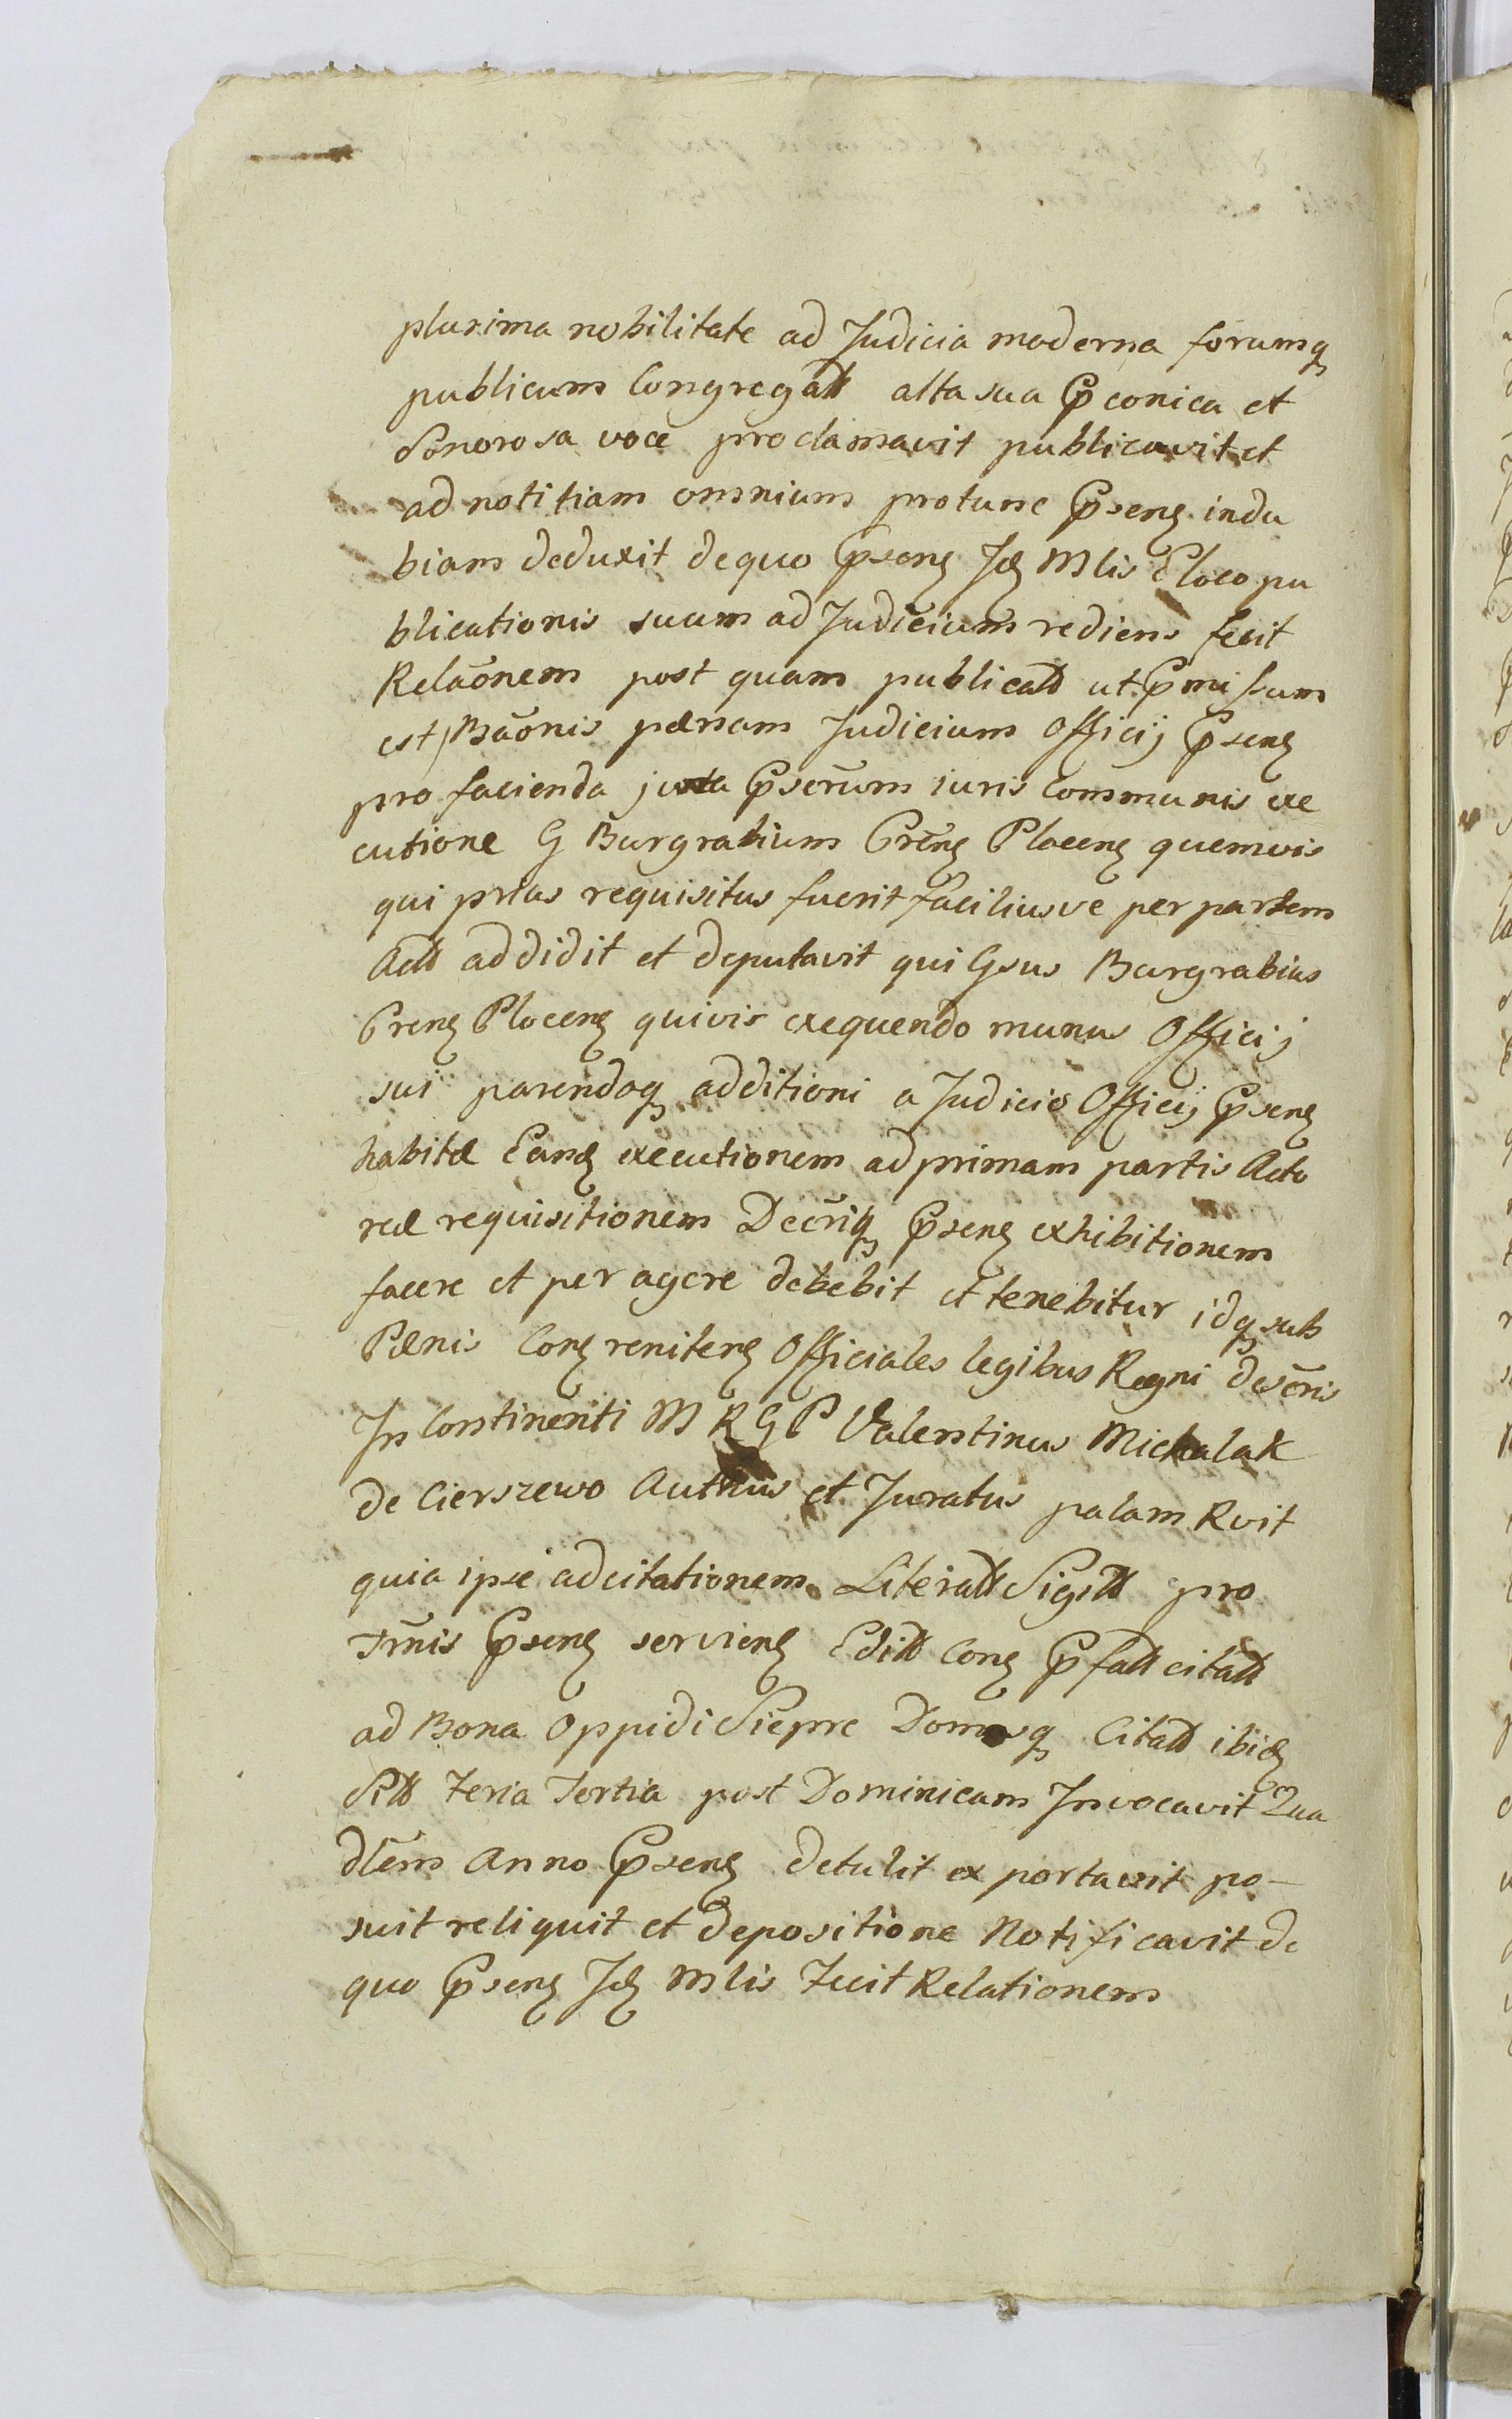 plurima nobilitate ad Judicia moderna forumq
publicum Congregatt alta sua Pconica et
Sonorosa voce proclamavit publicavit et
ad notitiam omnium protunc Psens indu
biam deduxit de quo Psens Jds Mlis E loco pu
blicationis suum ad Judicium rediens fecit
Relaōnem post quam publicatt ut Pmissum
est Bāonis pænam Judicium Officij Psens
pro facienda juxta Pserūm iuris Communis exe
cutione G Burgrabium Crēns Plocens quemvis
qui prius requisitus fuerit faciliusve per partem
Actt addidit et deputavit qui Gsus Burgrabius
Crens Plocens quivis exequendo munus Officij
sui parendoq additioni a Judicio Officij Psens
habitæ Eand executionem ad primam partis Acto
reæ requisitionem Decrīq Psens exhibitionem
facere et per agere debebit et tenebitur idq sub
Pænis Cons renitens Officiales legibus Regni descrīs
In Continenti M R G P Valentinus Michalak
de Cierszewo Autthus et Juratus palam Rvit
quia ipse ad citationem Literatt Sigitt pro
Trmīs Psens serviens Editt Cons Pfatt citatt
ad Bona Oppidi Siepre Domusq Citatt ibid
Sitt Feria Tertia post Dominicam Invocavit Qua
dlēm Anno Psens detulit ex portavit po-
suit reliquit et depositione Notificavit de
quo Psens Jds Mlis Fecit Relationem